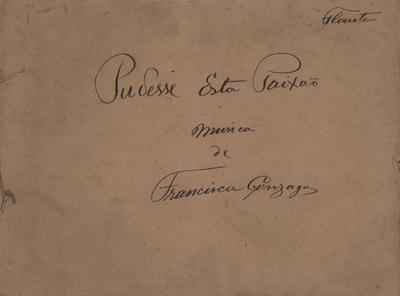 Flauta
Pudesse Esta Paixão
Musica
de
Francisca Gonzaga